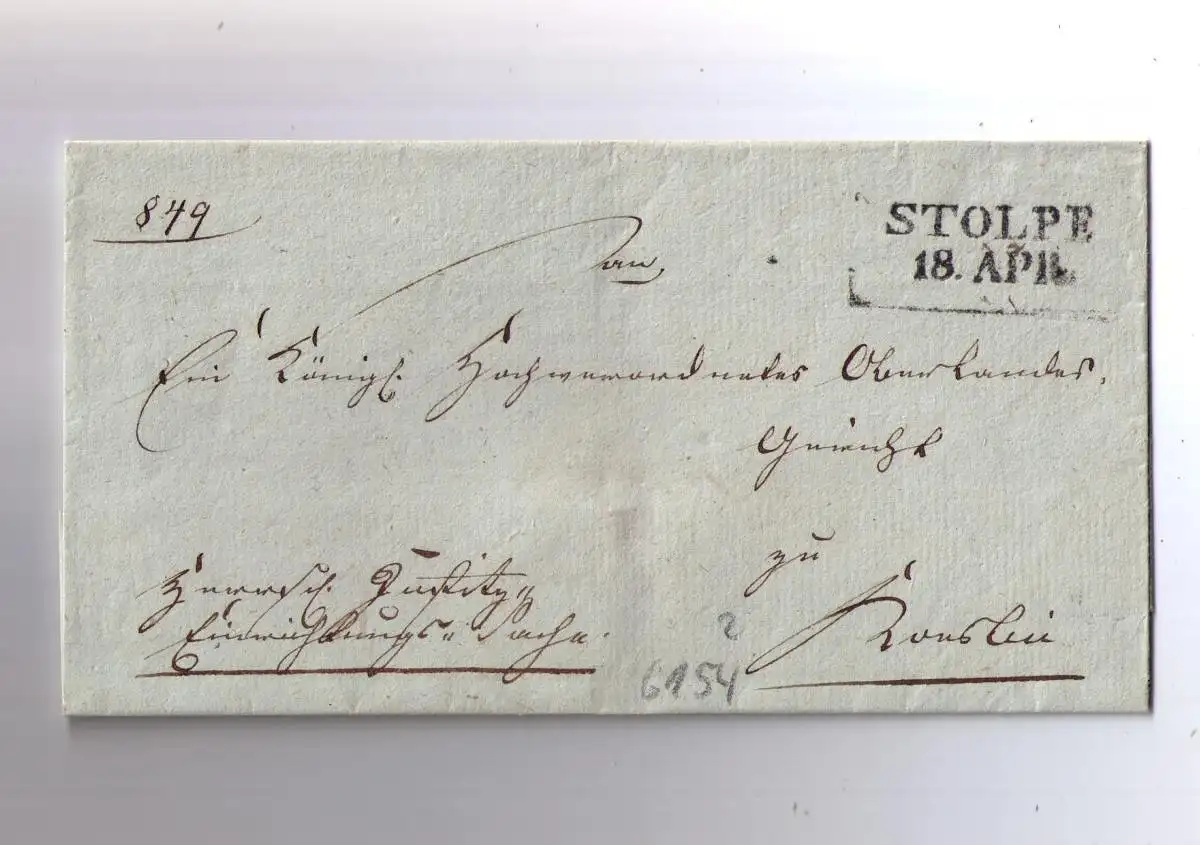 849
STOLPE
18. APR.
an
Ein Königl. Hochverordnetes Oberlandes,
Gericht
zu
Koeslin
Herrsch. Justitz„
Einrichtungs„ Sache.
2
6154